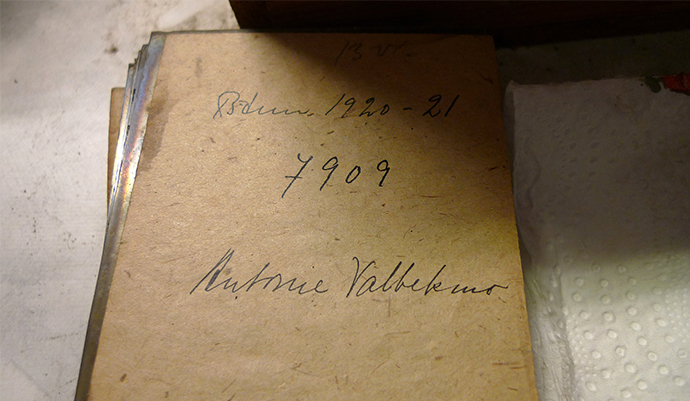 1920-21
7909
Antonie Valbekmo